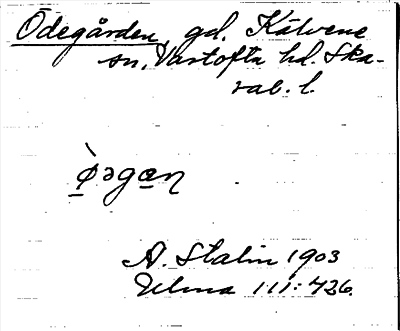 Ödegården, gd. Kälvene
sn. Vartofta hd. Ska-
rab. l.
ø̀əgan
A. Stalin 1903
111: 426.